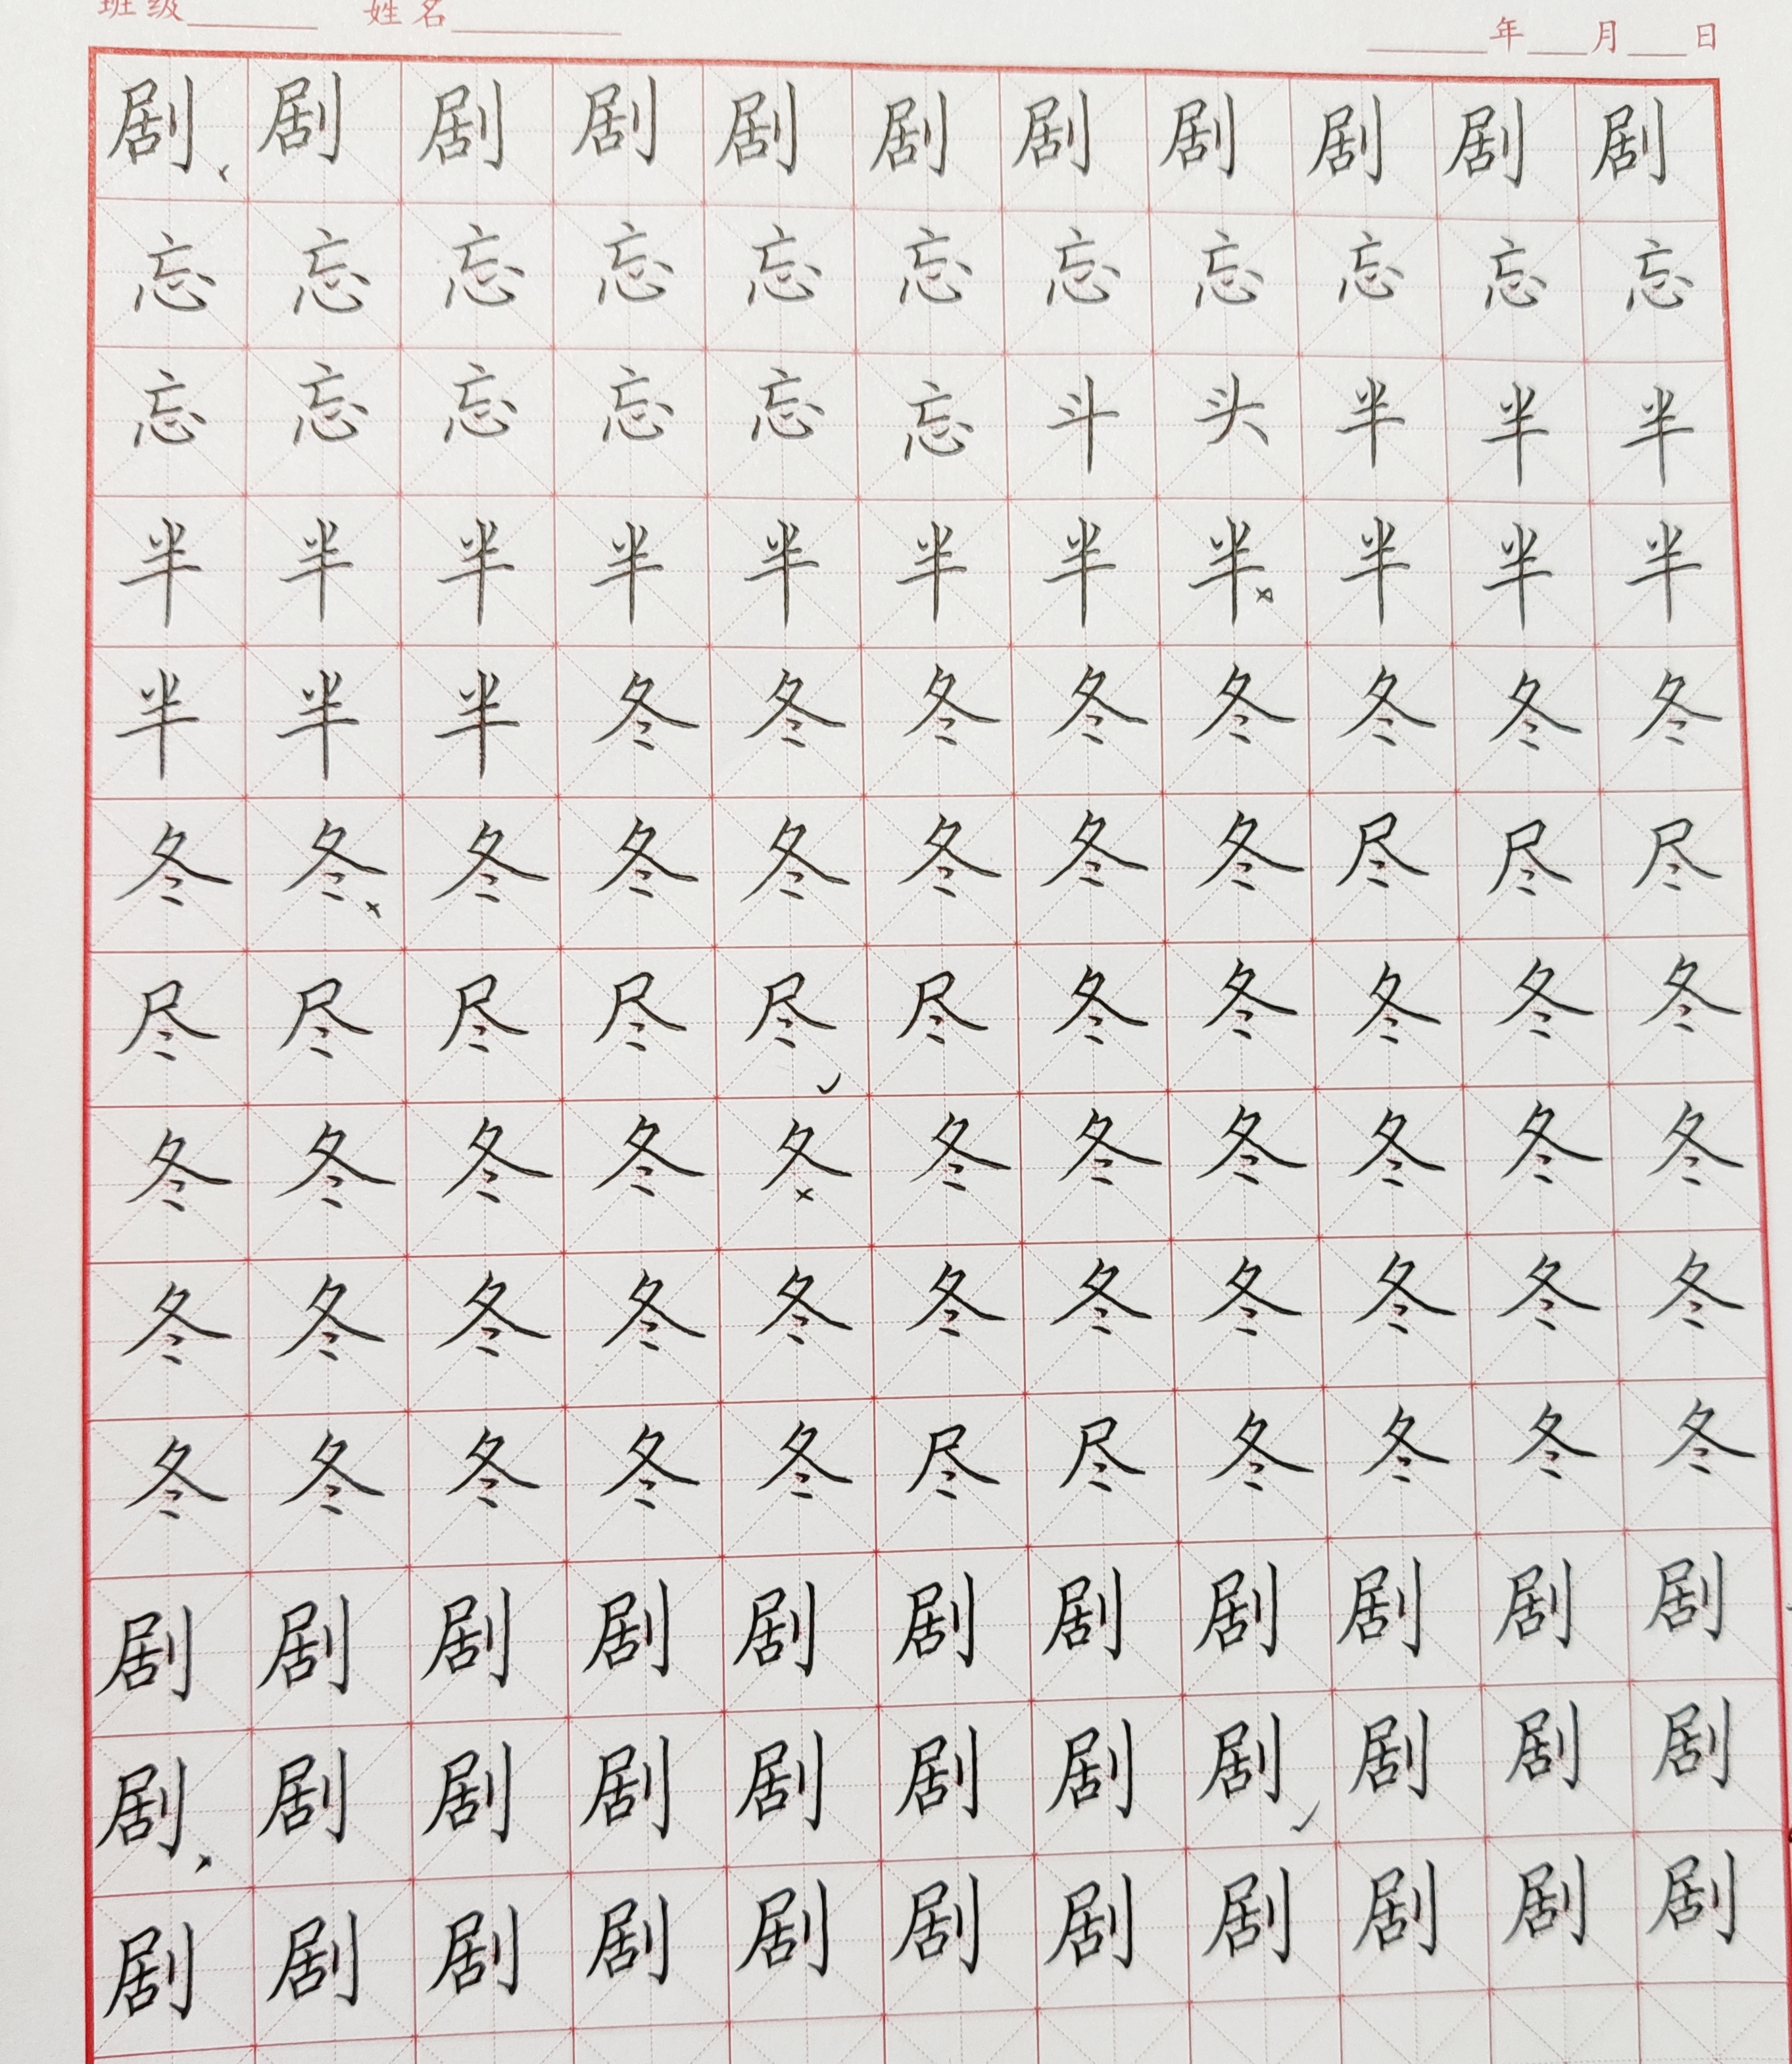 班级 姓名
年 月 日
剧剧剧剧剧剧剧剧剧剧剧
忘忘忘忘忘忘忘忘忘忘忘
忘忘忘忘忘忘斗头半半半
半半半半半半半半半半半
半半半冬冬冬冬冬冬冬冬
冬冬冬冬冬冬冬冬尽尽尽
尽尽尽尽尽尽冬冬冬冬冬
冬冬冬冬冬冬冬冬冬冬
冬冬冬冬冬冬冬冬冬冬冬
冬冬冬冬冬尽尽冬冬冬冬
剧剧剧剧剧剧剧剧剧剧剧
剧剧剧剧剧剧剧剧剧剧剧
剧剧剧剧剧剧剧剧剧剧剧